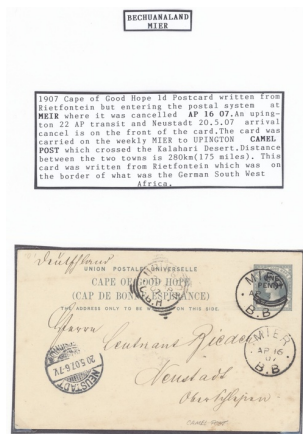 BECHUANALAND
MIER
1907 Cape of Good Hope 1d Postcard written from
Rietfontein but entering the postal system at
MEIR where it was cancelled AP 16 07.An uping-
ton 22 AP transit and Neustadt 20.5.07 arrival
cancel is on the front of the card.The card was
carried on the weekly MIER to UPINGTON CAMEL
POST which crossed the Kalahari Desert.Distance
between the two towns is 280km(175 miles). This
card was written from Rietfontein which was on
the border of what was the German South West
Africa.
Deutschland
UNION POSTALE UNIVERSELLE
CAPE OF GOOD HOPE
(CAP DE BONNE ESPERANCE)
THE ADDRESS ONLY TO BE WRITTEN ON THIS SIDE.
MIER
B.B
MIER
AP 16
07
B.B
Herrn
Leutnant Riedel
NEUSTADT
20.5.07.6-7V.
Neustadt
Oberschlesien
CAMEL POST